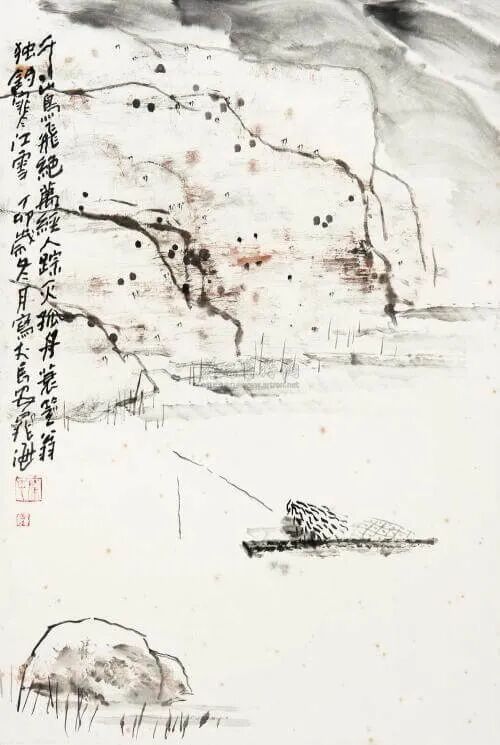 千山鳥飛絕萬徑人踪灭孤舟蓑笠翁
独釣寒江雪 丁卯歲冬月寫于長安
www.artron.net